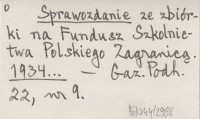 Sprawozdanie ze zbiór-
ki na Fundusz Szkolnic-
twa Polskiego Zagranicą.
1934... — Gaz. Podh.
22, nr 9.